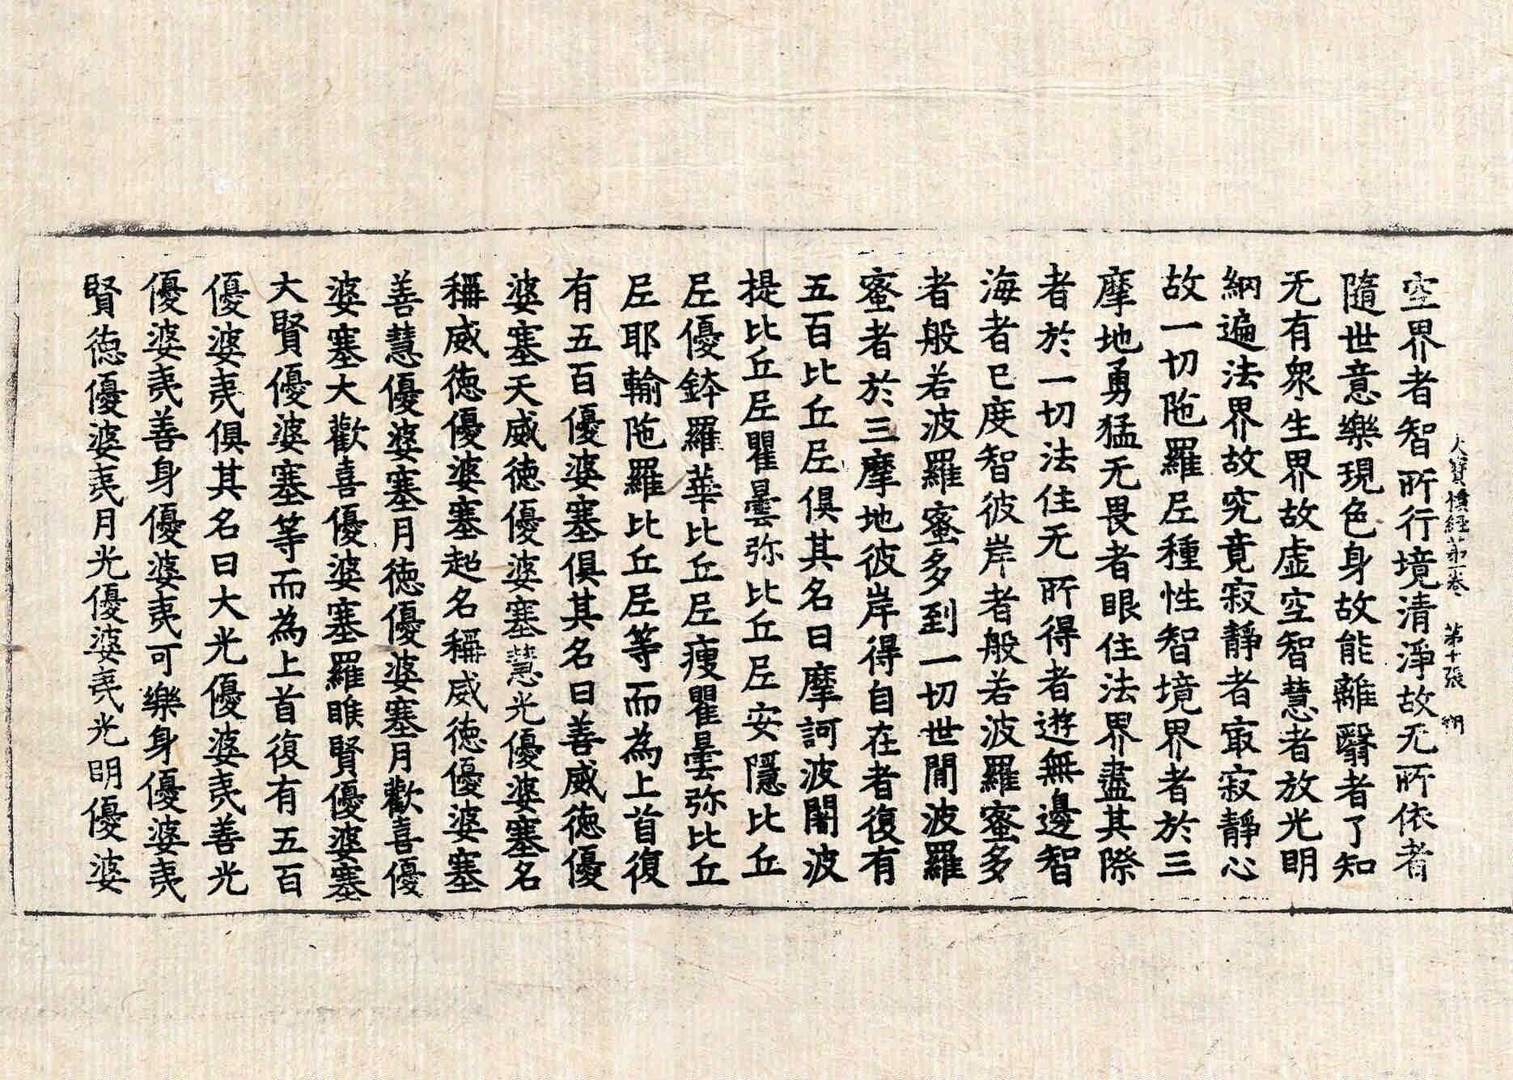 大寶積經第一卷 第十張 㓻
空界者智所行境清淨故无所依者
隨世意樂現色身故能離翳者了知
无有衆生界故虛空智慧者放光明
網遍法界故究竟寂靜者㝡寂靜心
故一切陁羅尼種性智境界者於三
摩地勇猛无畏者眼住法界盡其際
者於一切法住无所得者遊無邊智
海者已度智彼岸者般若波羅蜜多
者般若波羅蜜多到一切世間波羅
蜜者於三摩地彼岸得自在者復有
五百比丘尼俱其名曰摩訶波闍波
提比丘尼瞿曇弥比丘尼安隱比丘
尼優鉢羅華比丘尼瘦瞿曇弥比丘
尼耶輸陁羅比丘尼等而為上首復
有五百優婆塞俱其名曰善威徳優
婆塞天威徳優婆塞慧光優婆塞名
稱威徳優婆塞超名稱威徳優婆塞
善慧優婆塞月徳優婆塞月歡喜優
婆塞大歡喜優婆塞羅睺賢優婆塞
大賢優婆塞等而為上首復有五百
優婆夷俱其名曰大光優婆夷善光
優婆夷善身優婆夷可樂身優婆夷
賢徳優婆夷月光優婆夷光明優婆